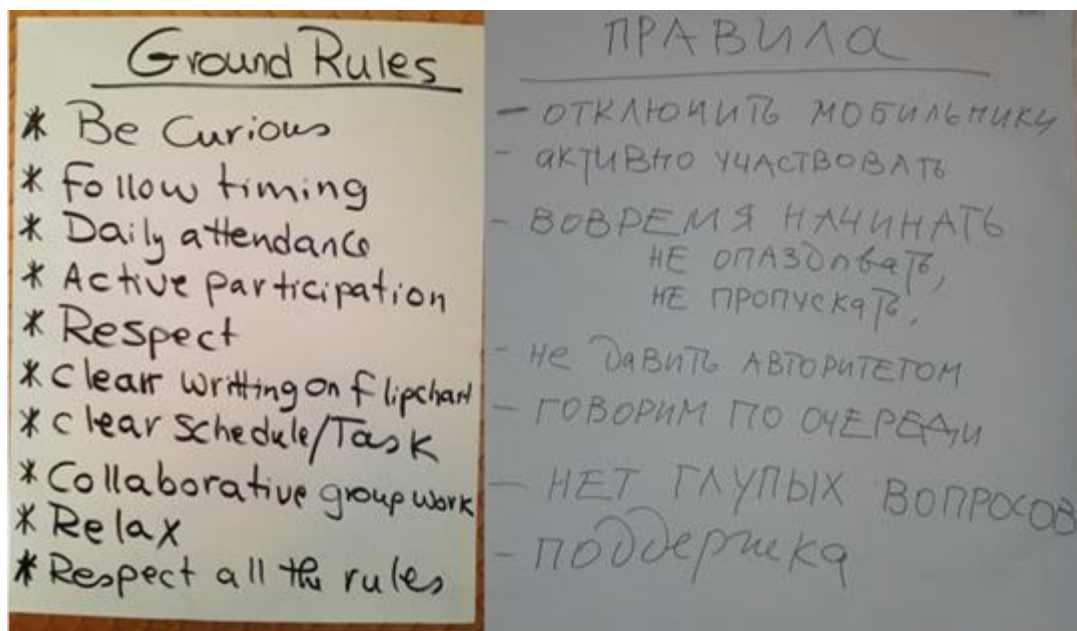 Ground Rules
* Be Curious
* Follow timing
* Daily attendance
* Active participation
* Respect
* Clear writting on flipchart
* Clear Schedule/Task
* Collaborative group work
* Relax
* Respect all the rules
ПРАВИЛА
- ОТКЛЮЧИТЬ МОБИЛЬНИКИ
- активно участвовать
- ВОВРЕМЯ НАЧИНАТЬ
НЕ ОПАЗДЫВАТЬ,
НЕ ПРОПУСКАТЬ.
- Не ДАВИТЬ АВТОРИТЕТОМ
- ГОВОРИМ ПО ОЧЕРЕДИ
- НЕТ ГЛУПЫХ ВОПРОСОВ
- поддержка